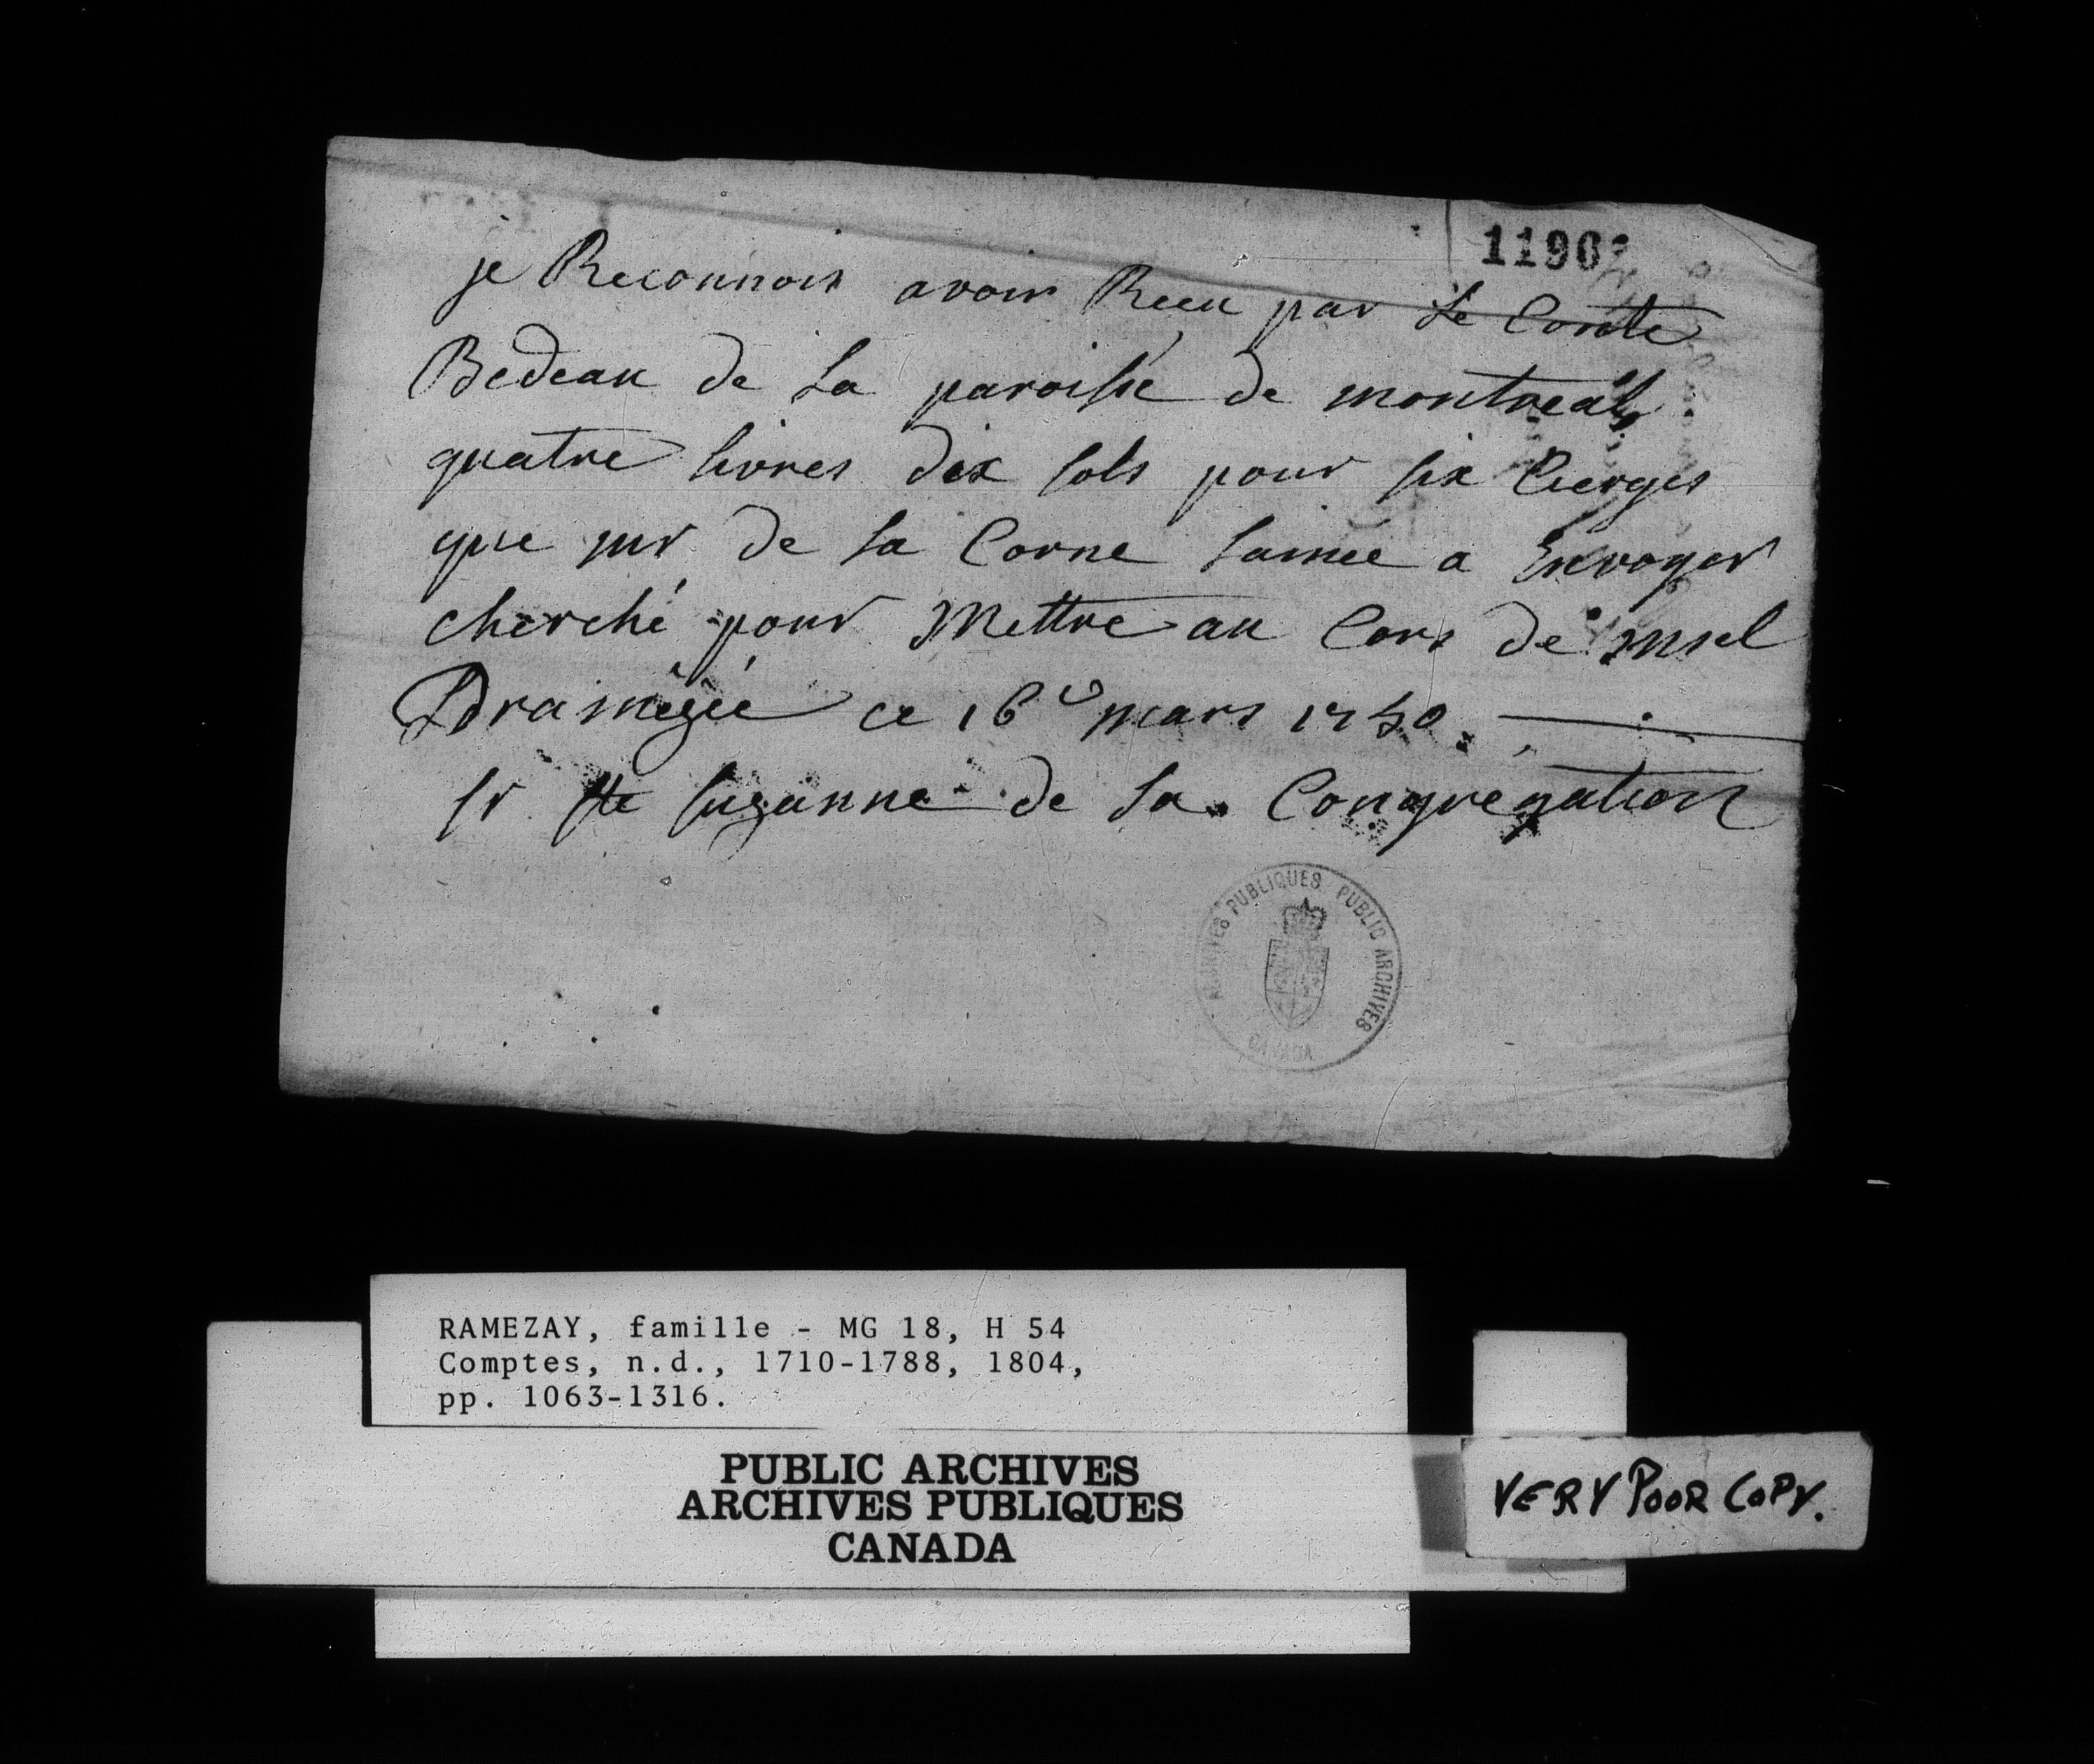 1196
je Reconnois avoir Recu par Le Comte
Bedeau de La paroisse de montreal
quatre livres dix sols pour six Cierges
que mr de la Corne lainée a Envoyer
cherché pour Mettre au Cors de Msel
Dramezée ce 16e mars 1740
sr ste suzanne de la Congregation
ARCHIVES PUBLIQUES PUBLIC ARCHIVES
CANADA
RAMEZAY, famille - MG 18, H 54
Comptes, n.d., 1710-1788, 1804,
pp. 1063-1316.
PUBLIC ARCHIVES
ARCHIVES PUBLIQUES
CANADA
VERY POOR COPY.